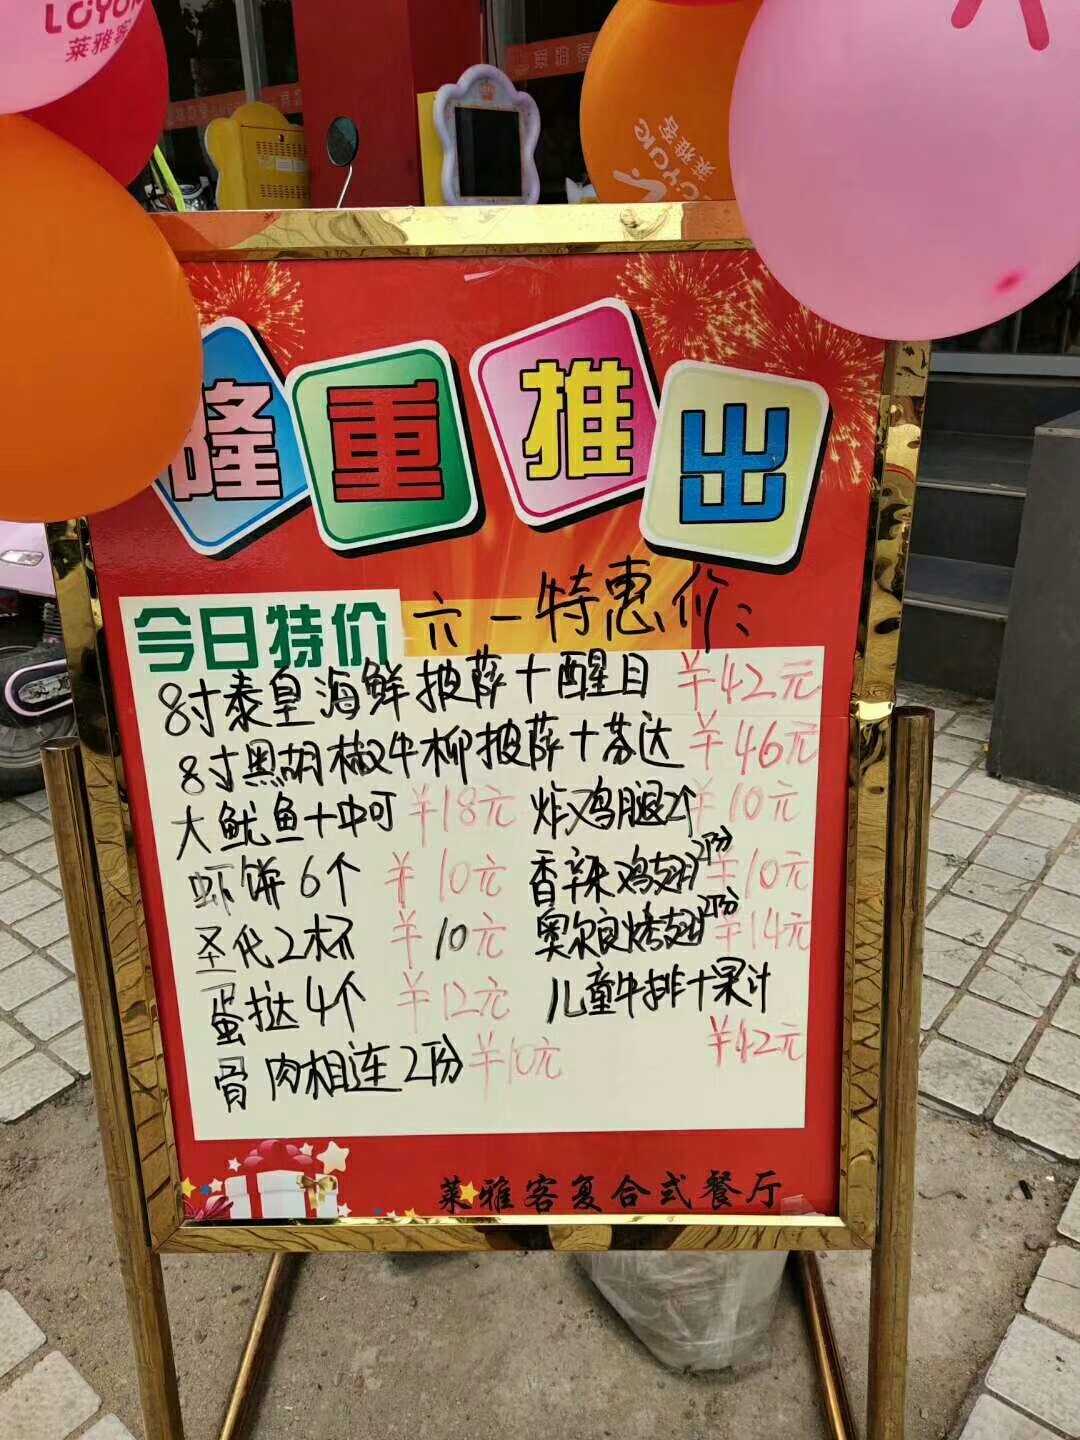 LOYO
莱雅客
莱雅客
莱雅客
隆重推出
今日特价 六一特惠价:
8寸泰皇海鲜披萨+醒目 ¥42元
8寸黑胡椒牛柳披萨+芬达 ¥46元
大鱿鱼+中可 ¥18元 炸鸡腿2个 ¥10元
虾饼6个 ¥10元 香辣鸡翅2份 ¥10元
圣代2杯 ¥10元 奥尔良烤翅2份 ¥14元
蛋挞4个 ¥12元 儿童牛排+果汁
¥42元
骨肉相连2份 ¥10元
莱雅客复合式餐厅